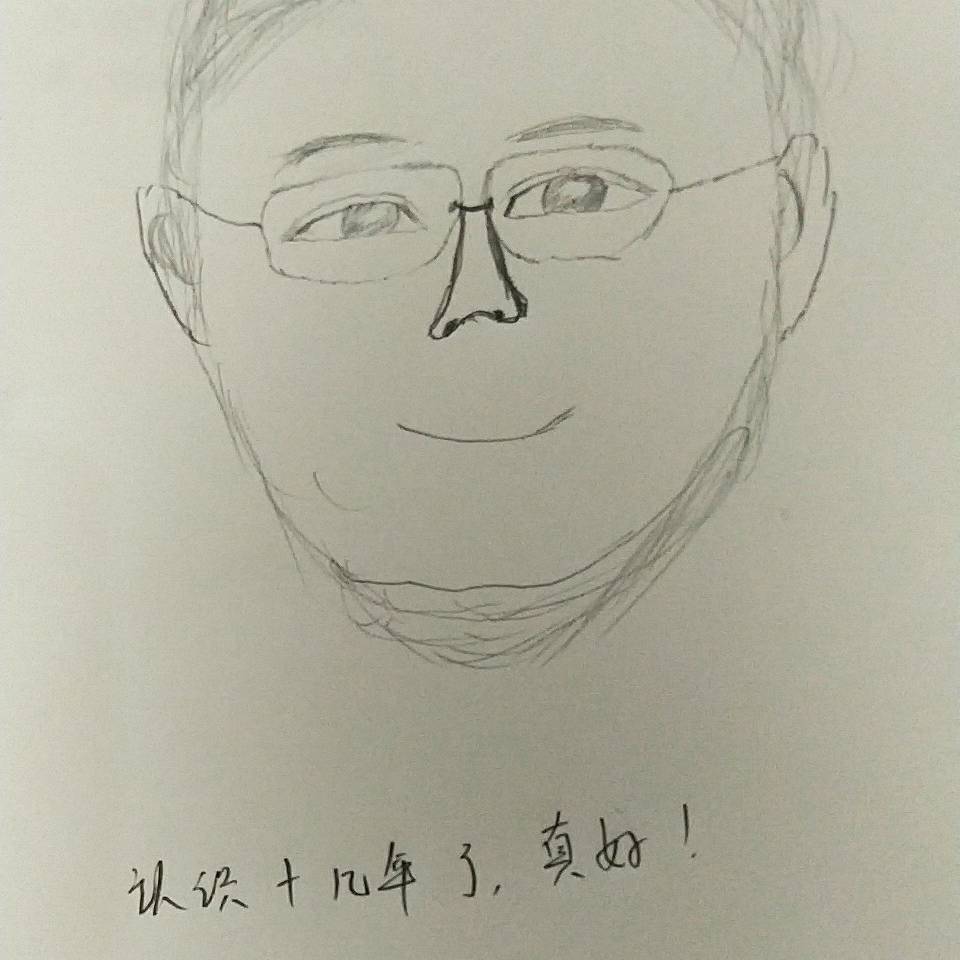 认识十几年了,真好!